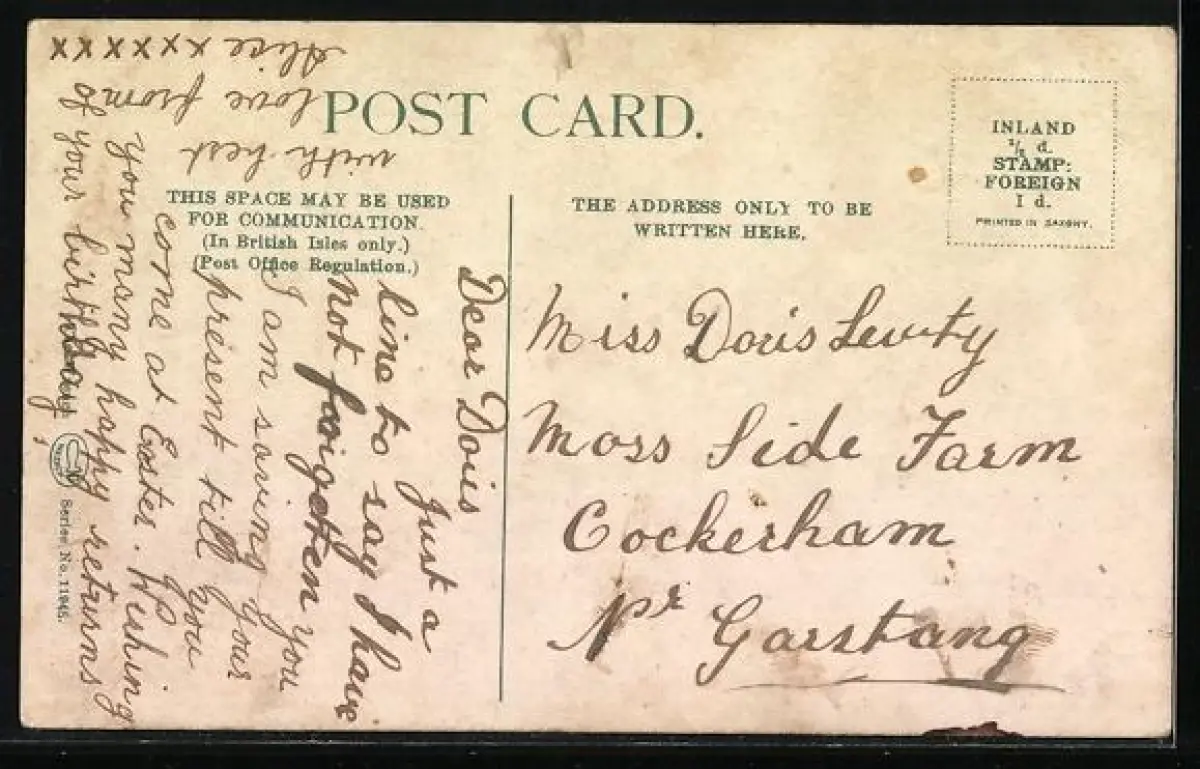 POST CARD.
THIS SPACE MAY BE USED
FOR COMMUNICATION.
(In British Isles only.)
(Post Office Regulation.)
THE ADDRESS ONLY TO BE
WRITTEN HERE.
INLAND
½ d.
STAMP:
FOREIGN
1 d.
PRINTED IN SAXONY.
Dear Doris
Just a
line to say I have
not forgoten you
I am saving your
present till you
come at Easter. Wishing
you many happy returns
of your birthday,
with best
love from
Alice xxxxxxx
Miss Doris Lewty
Moss Side Farm
Cockerham
Nr Garstang
Series No. 11945.